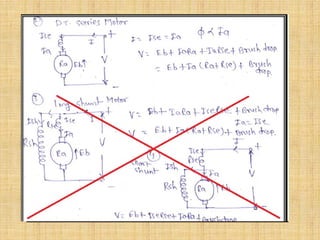 D.C. Series Motor
Ise
+
I
Ia
Ra
Eb
V
-
I = Ise = Ia
ϕ ∝ Ia
V = Eb + IaRa + IaRse + Brush drop
= Eb + Ia (Ra + Rse) + Brush drop.
Long shunt Motor
Ish
Ise
Rse
+
Rsh
Ia
Ra
Eb
V
-
V = Eb + IaRa + IseRse + Brush drop
Ia = Ise
V = Eb + Ia (Ra + Rse) + Brush drop.
Short shunt
Ise
Rse
I
+
Ish
Rsh
Ia
Ra
V
-
V = Eb + IseRse + IaRa + Brush drop